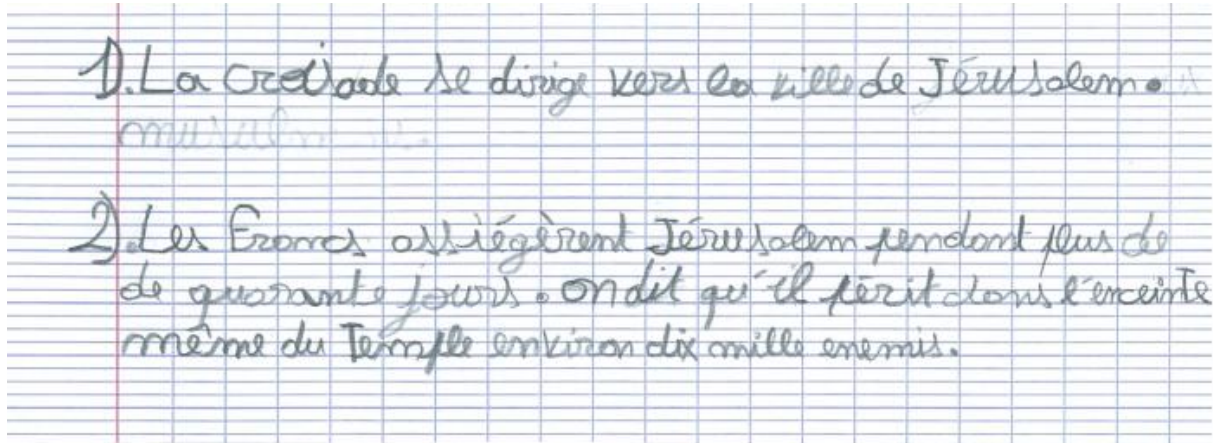 1). La croisade se dirige vers la ville de Jérusalem.
musulmans.
2). Les Francs assiégèrent Jérusalem pendant plus de
de quarante jours. on dit qu'il périt dans l'enceinte
même du Temple environ dix mille enemis.